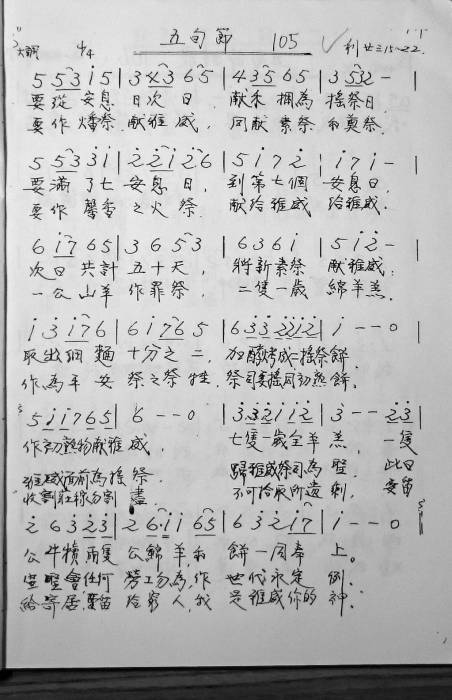 五旬節 105 ✓ 利廿三15~22.
大調 4/4
5 5 3 i 5 | 3 4 3 6 5 | 4 3 5 6 5 | 3 5 3 2 - |
要從安息日次日, 献禾捆為搖祭日.
要作燔祭献雅威, 同献素祭和奠祭.
5 5 3 3 i | 2 2 i 2 6 | 5 i 7 2 | i 7 i - |
要滿了七安息日, 到第七個安息日.
要作馨香之火祭. 献給雅威給雅威.
6 i 7 6 5 | 3 6 5 3 | 6 3 6 i | 5 i 2 - |
次日共計五十天, 將新素祭献雅威;
一公山羊作罪祭. 二隻一歲綿羊羔.
i 3 i 7 6 | 6 i 7 6 5 | 6 3 3 2 2 i 2 | i - - 0 |
取出細麵十分之二, 加酵烤成搖祭餅.
作為平安祭之祭牲. 祭司要搖同初熟餅.
5 i i 7 6 5 | 6 - - 0 | 3 3 2 i i 2 | 3 - - 2 3 |
作初熟物献雅威. 七隻一歲全羊羔, 一隻
雅威面前為搖祭. 歸雅威祭司為聖. 此日
收割莊稼勿割盡. 不可拾取所遺剩, 要留
2 6 3 2 3 | 2 6 i i 6 5 | 6 3 2 i 7 | i - - 0 ‖
公牛犢兩隻公綿羊, 和餅一同奉上。
宣聖會任何勞工勿為, 作世代永定例.
給寄居, 要留給窮人, 我是雅威你的神.